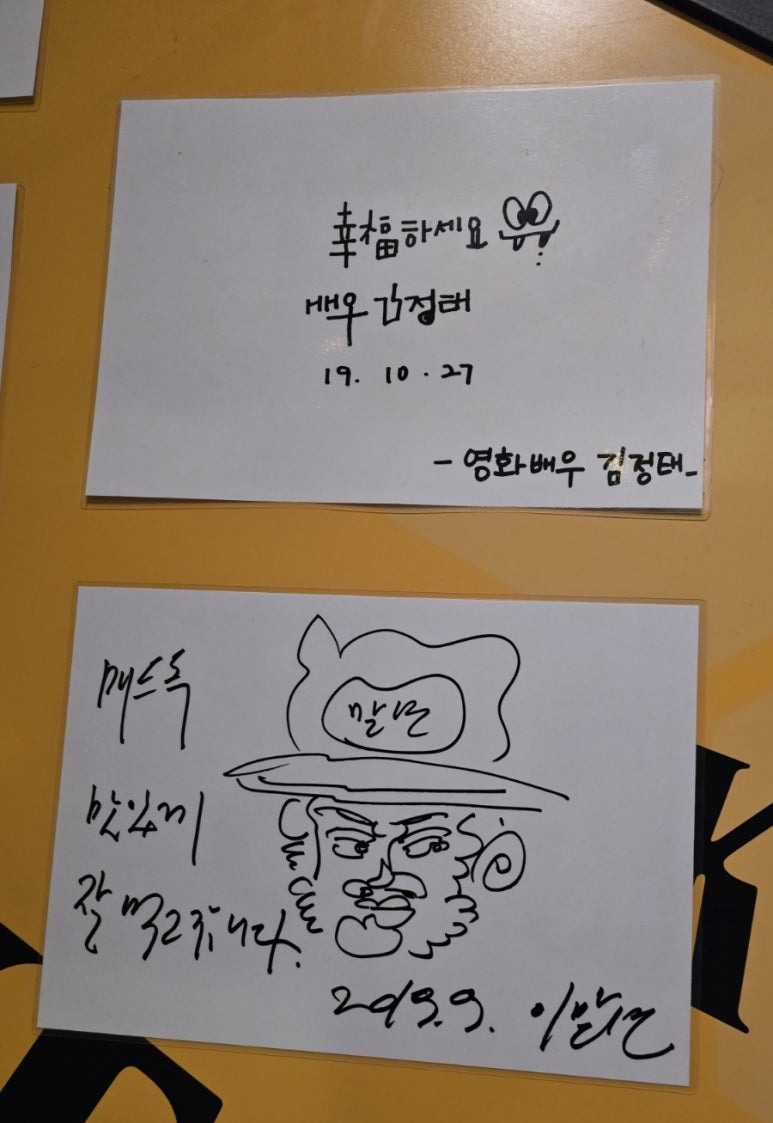 幸福하세요
배우 김정태
19. 10. 27
- 영화배우 김정태 -
말년
맛있게
잘 먹고 갑니다.
2019. 9. 이말년